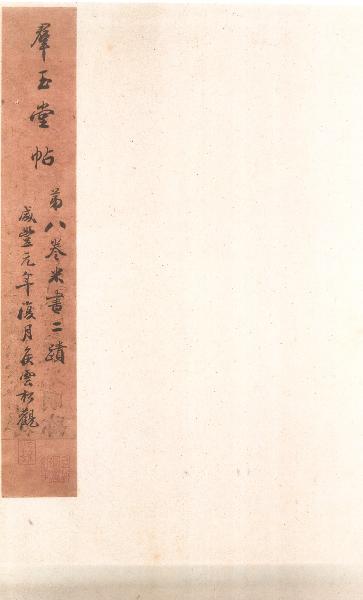 羣玉堂帖
第八卷米書二蹟
咸豐元年復月侯雲松觀